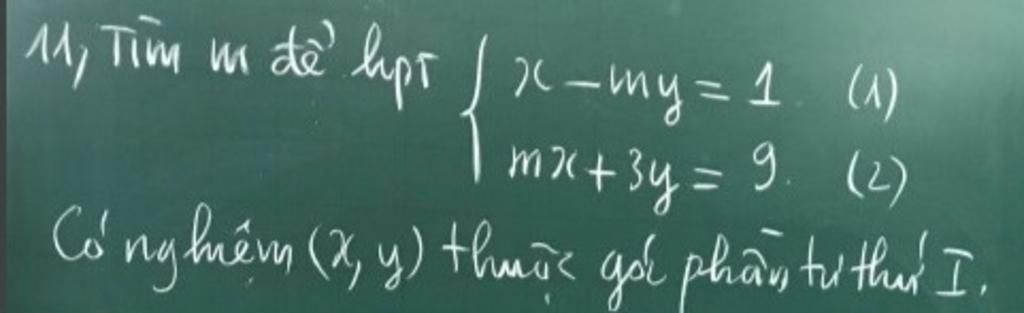 11, Tìm m để hpt { x - my = 1 (1)
mx + 3y = 9. (2)
Có nghiệm (x, y) thuộc góc phần tư thứ I.